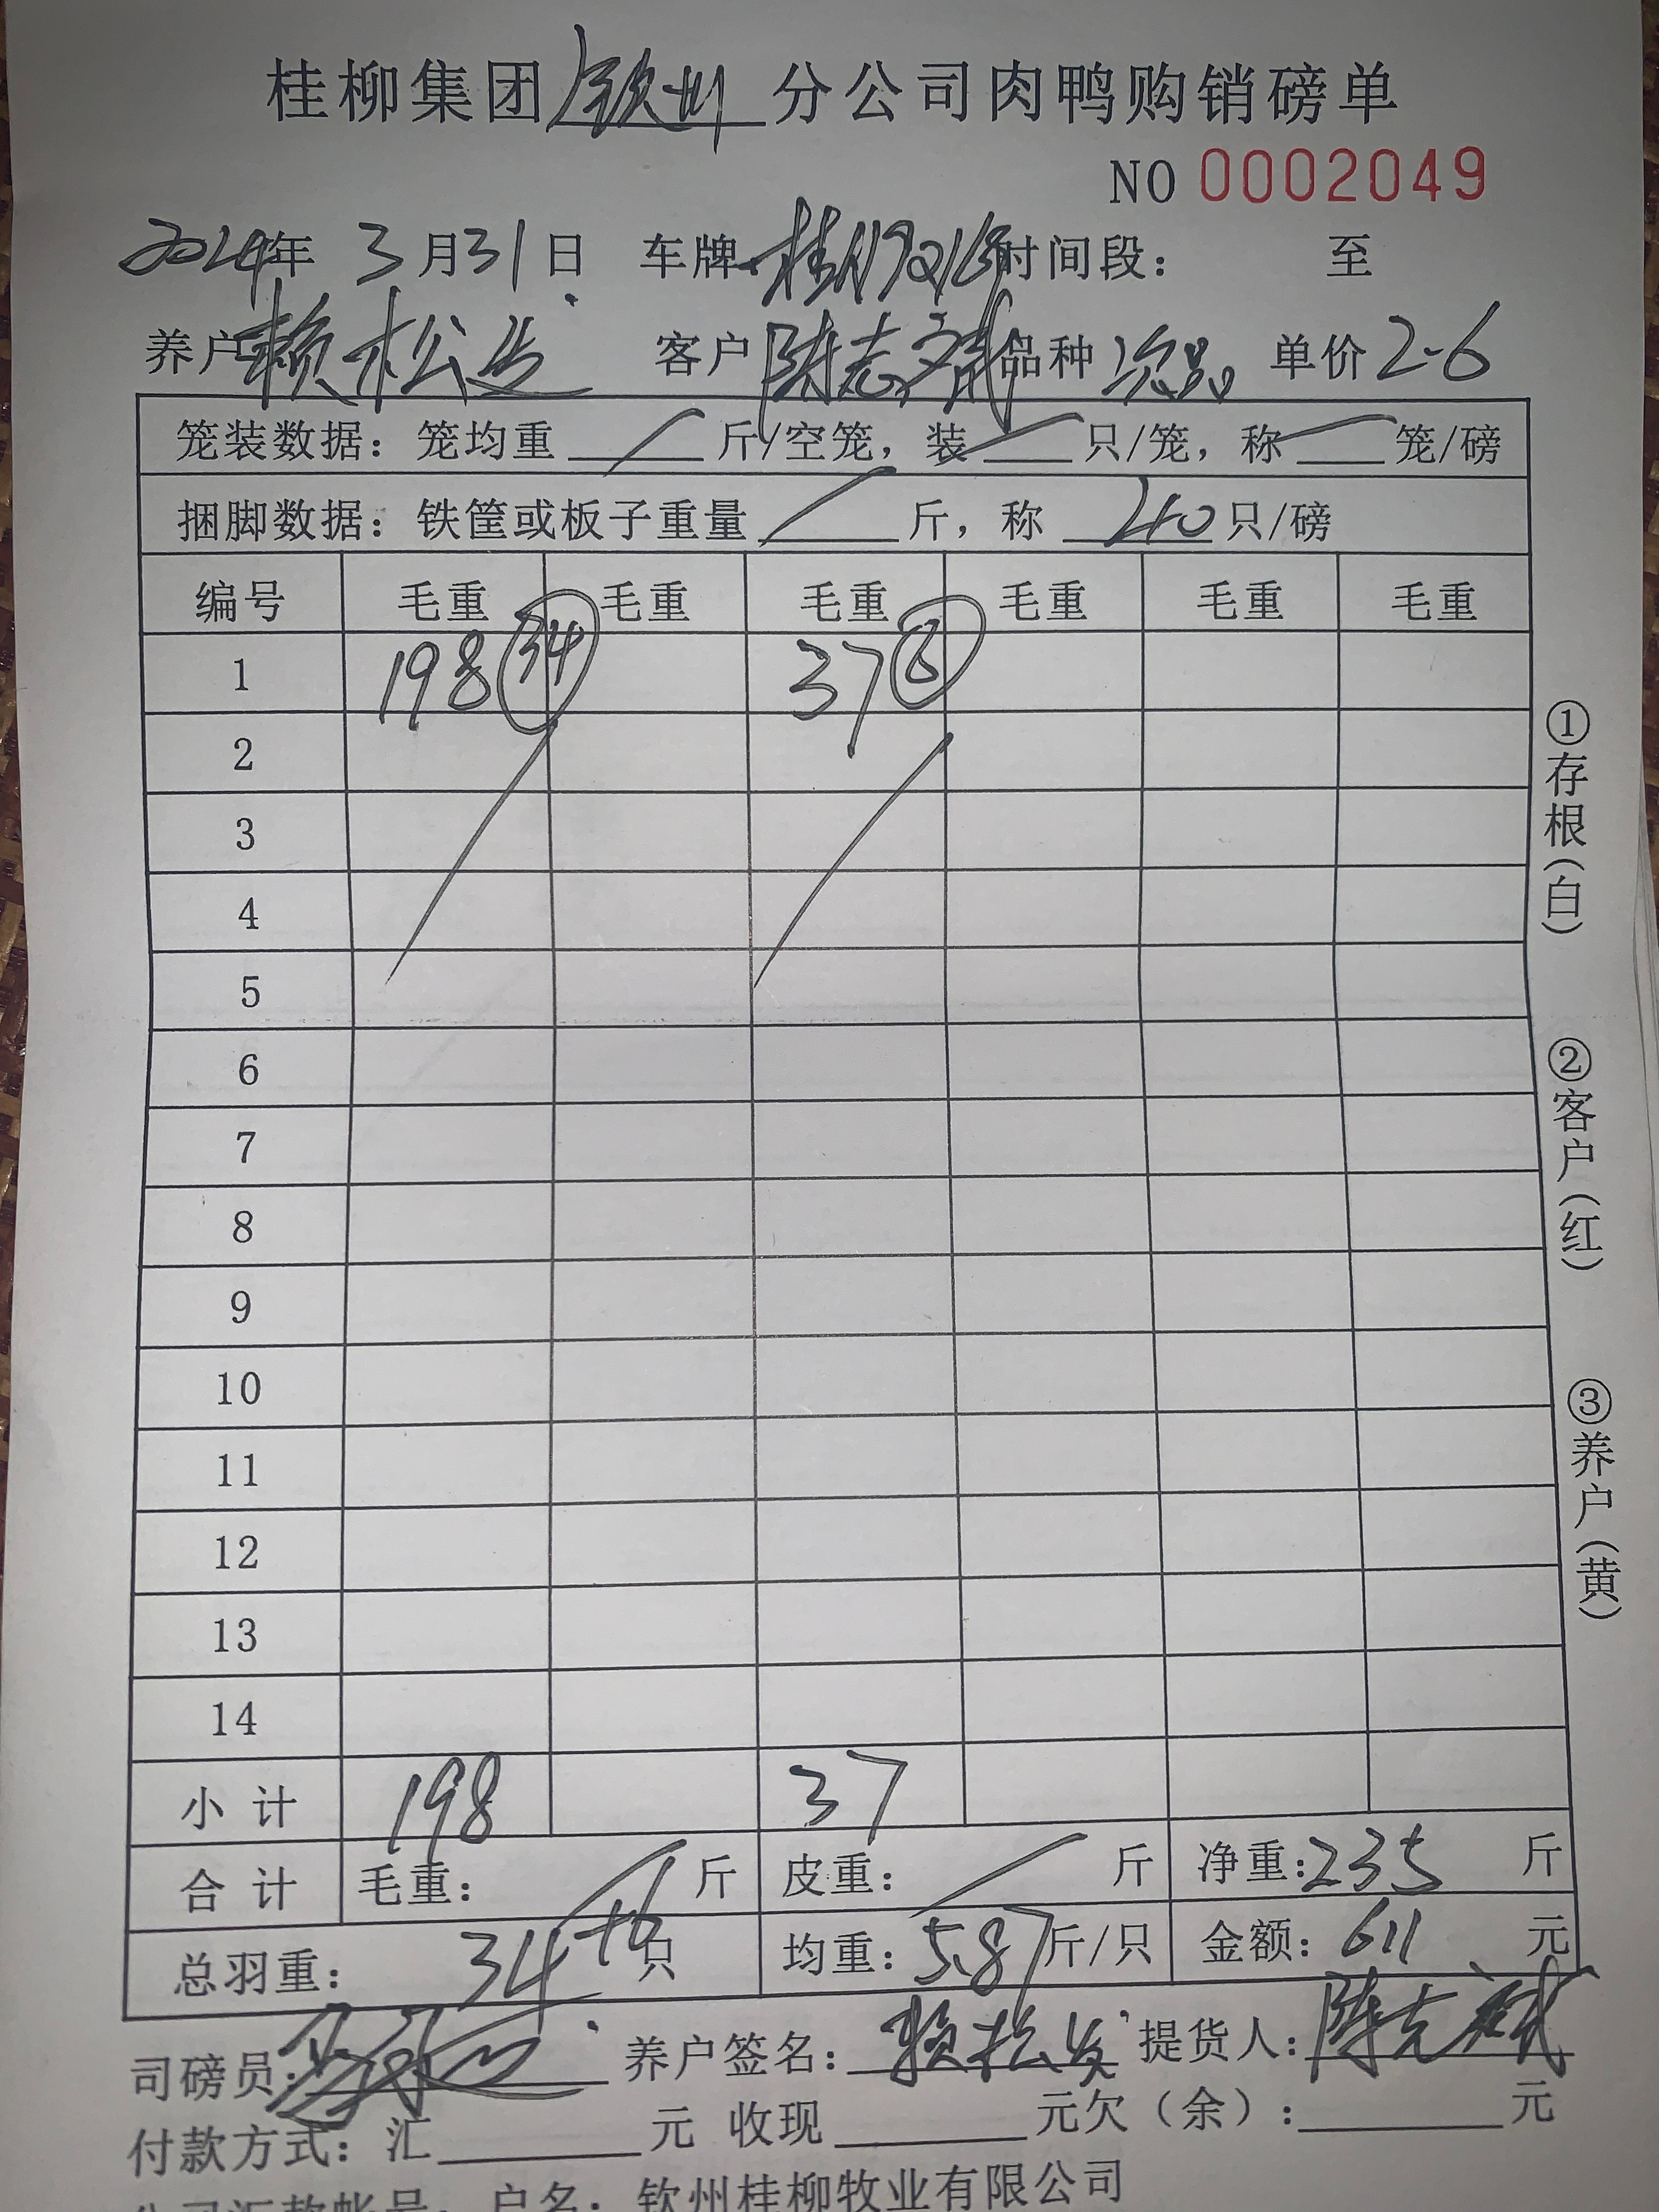 桂柳集团 钦州 分公司肉鸭购销磅单
NO 0002049
2024年 3月31日 车牌 时间段： 至
养户 赖松 客户 陈志 品种 次品 单价 2-6
笼装数据：笼均重 斤/空笼，装 只/笼，称 笼/磅
捆脚数据：铁筐或板子重量 斤，称 40 只/磅
编号 毛重 毛重 毛重 毛重 毛重 毛重
1 198 34 37
2
3
4
5
6
7
8
9
10
11
12
13
14
小计 198 37
合计 毛重： 斤 皮重： 斤 净重：235 斤
总羽重：34+6只 均重：5.87斤/只 金额：611 元
司磅员： 养户签名：赖松发 提货人：陈
付款方式：汇 元 收现 元欠（余）： 元
公司汇款帐号：户名：钦州桂柳牧业有限公司
①存根（白）
②客户（红）
③养户（黄）